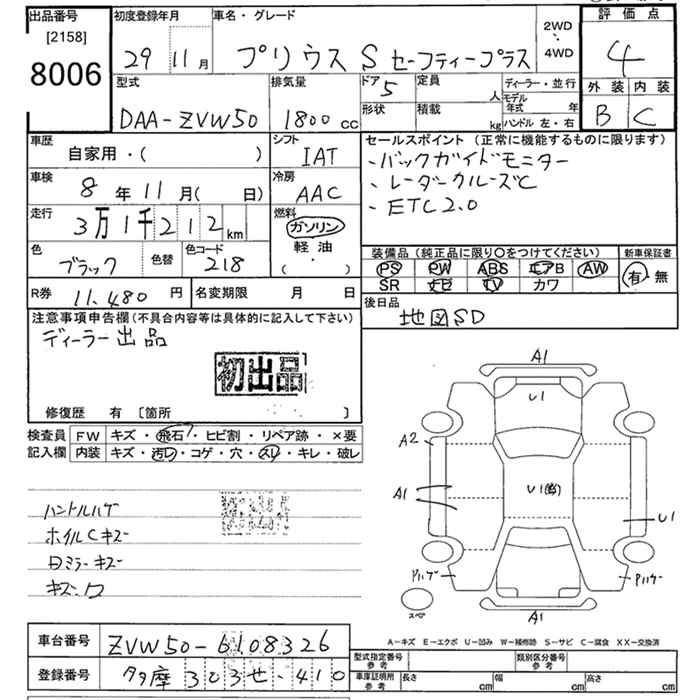 出品番号
[2158]
8006
初度登録年月
29 11月
車名・グレード
プリウス S セーフティープラス
2WD
4WD
評価点
4
外装 内装
B C
型式
DAA-ZVW50
排気量
1800 cc
ドア 5
形状
定員 人
積載 kg
ディーラー・並行
モデル年式 年
ハンドル 左・右
車歴
自家用・( )
シフト
IAT
車検
8年11月( 日)
冷房
AAC
走行
3万1千212km
燃料
ガソリン
軽油
( ・ )
色
ブラック
色替
色コード
218
R券 11,480円
名変期限 月 日
セールスポイント (正常に機能するものに限ります)
・バックガイドモニター
・レーダークルーズC
・ETC2.0
装備品 (純正品に限り○をつけてください)
PS PW ABS エアB AW
SR ナビ TV カワ
新車保証書
有・無
後日品
地図SD
注意事項申告欄(不具合内容等は具体的に記入して下さい)
ディーラー出品
初出品
修復歴 有 〔箇所 〕
検査員記入欄
FW キズ・飛石・ヒビ割・リペア跡・×要
内装 キズ・汚レ・コゲ・穴・スレ・キレ・破レ
ハンドルハゲ
ホイルCキズ
日ミラーキズ
A1
U1
A2
A1
U1
U1
Pハゲ
Pハゲ
スペア
A1
A-キズ E-エクボ U-凹み W-補修跡 S-サビ C-腐食 XX-交換済
車台番号 ZVW50-6108326
登録番号 多摩 303 せ ・410
型式指定番号 参考
類別区分番号 参考
車庫証明用 参考
長さ cm
幅 cm
高さ cm